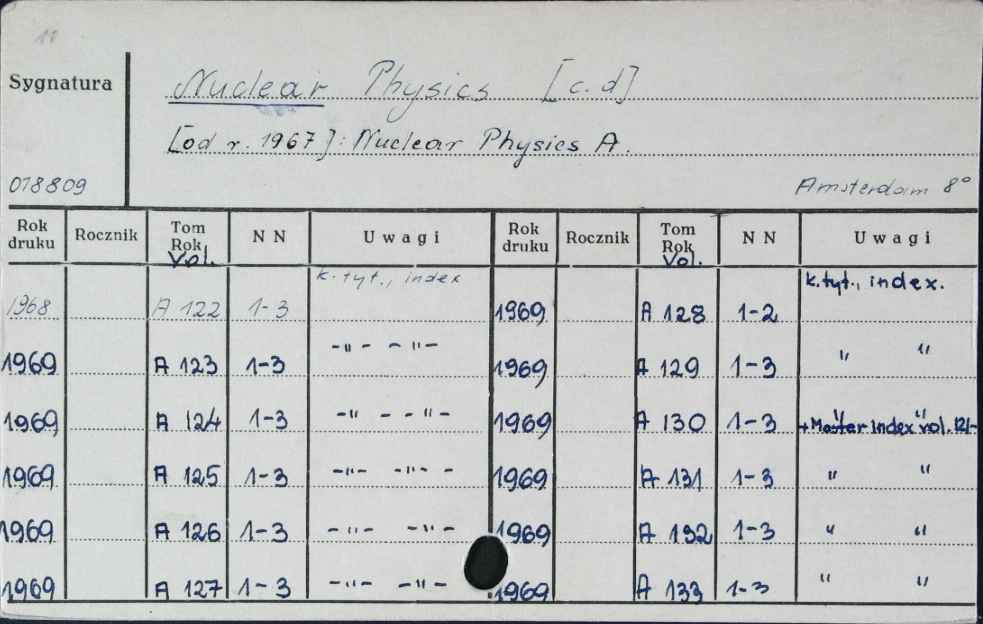 11
Sygnatura
Nuclear Physics [c.d]
[od r. 1967]: Nuclear Physics A.
018809
Amsterdam 8°
Rok druku Rocznik Tom Rok Vol. N N Uwagi Rok druku Rocznik Tom Rok Vol. N N Uwagi
k. tyt., index k.tyt., index.
1968 A 122 1-3 1969 A 128 1-2
1969 A 123 1-3 -"- -"- 1969 A 129 1-3 " "
1969 A 124 1-3 -"- - -"- 1969 A 130 1-3 " "
+Master Index vol. 121-
1969 A 125 1-3 -"- -"- - 1969 A 131 1-3 " "
1969 A 126 1-3 -"- -"- 1969 A 132 1-3 " "
1969 A 127 1-3 -"- -"- 1969 A 133 1-3 " "